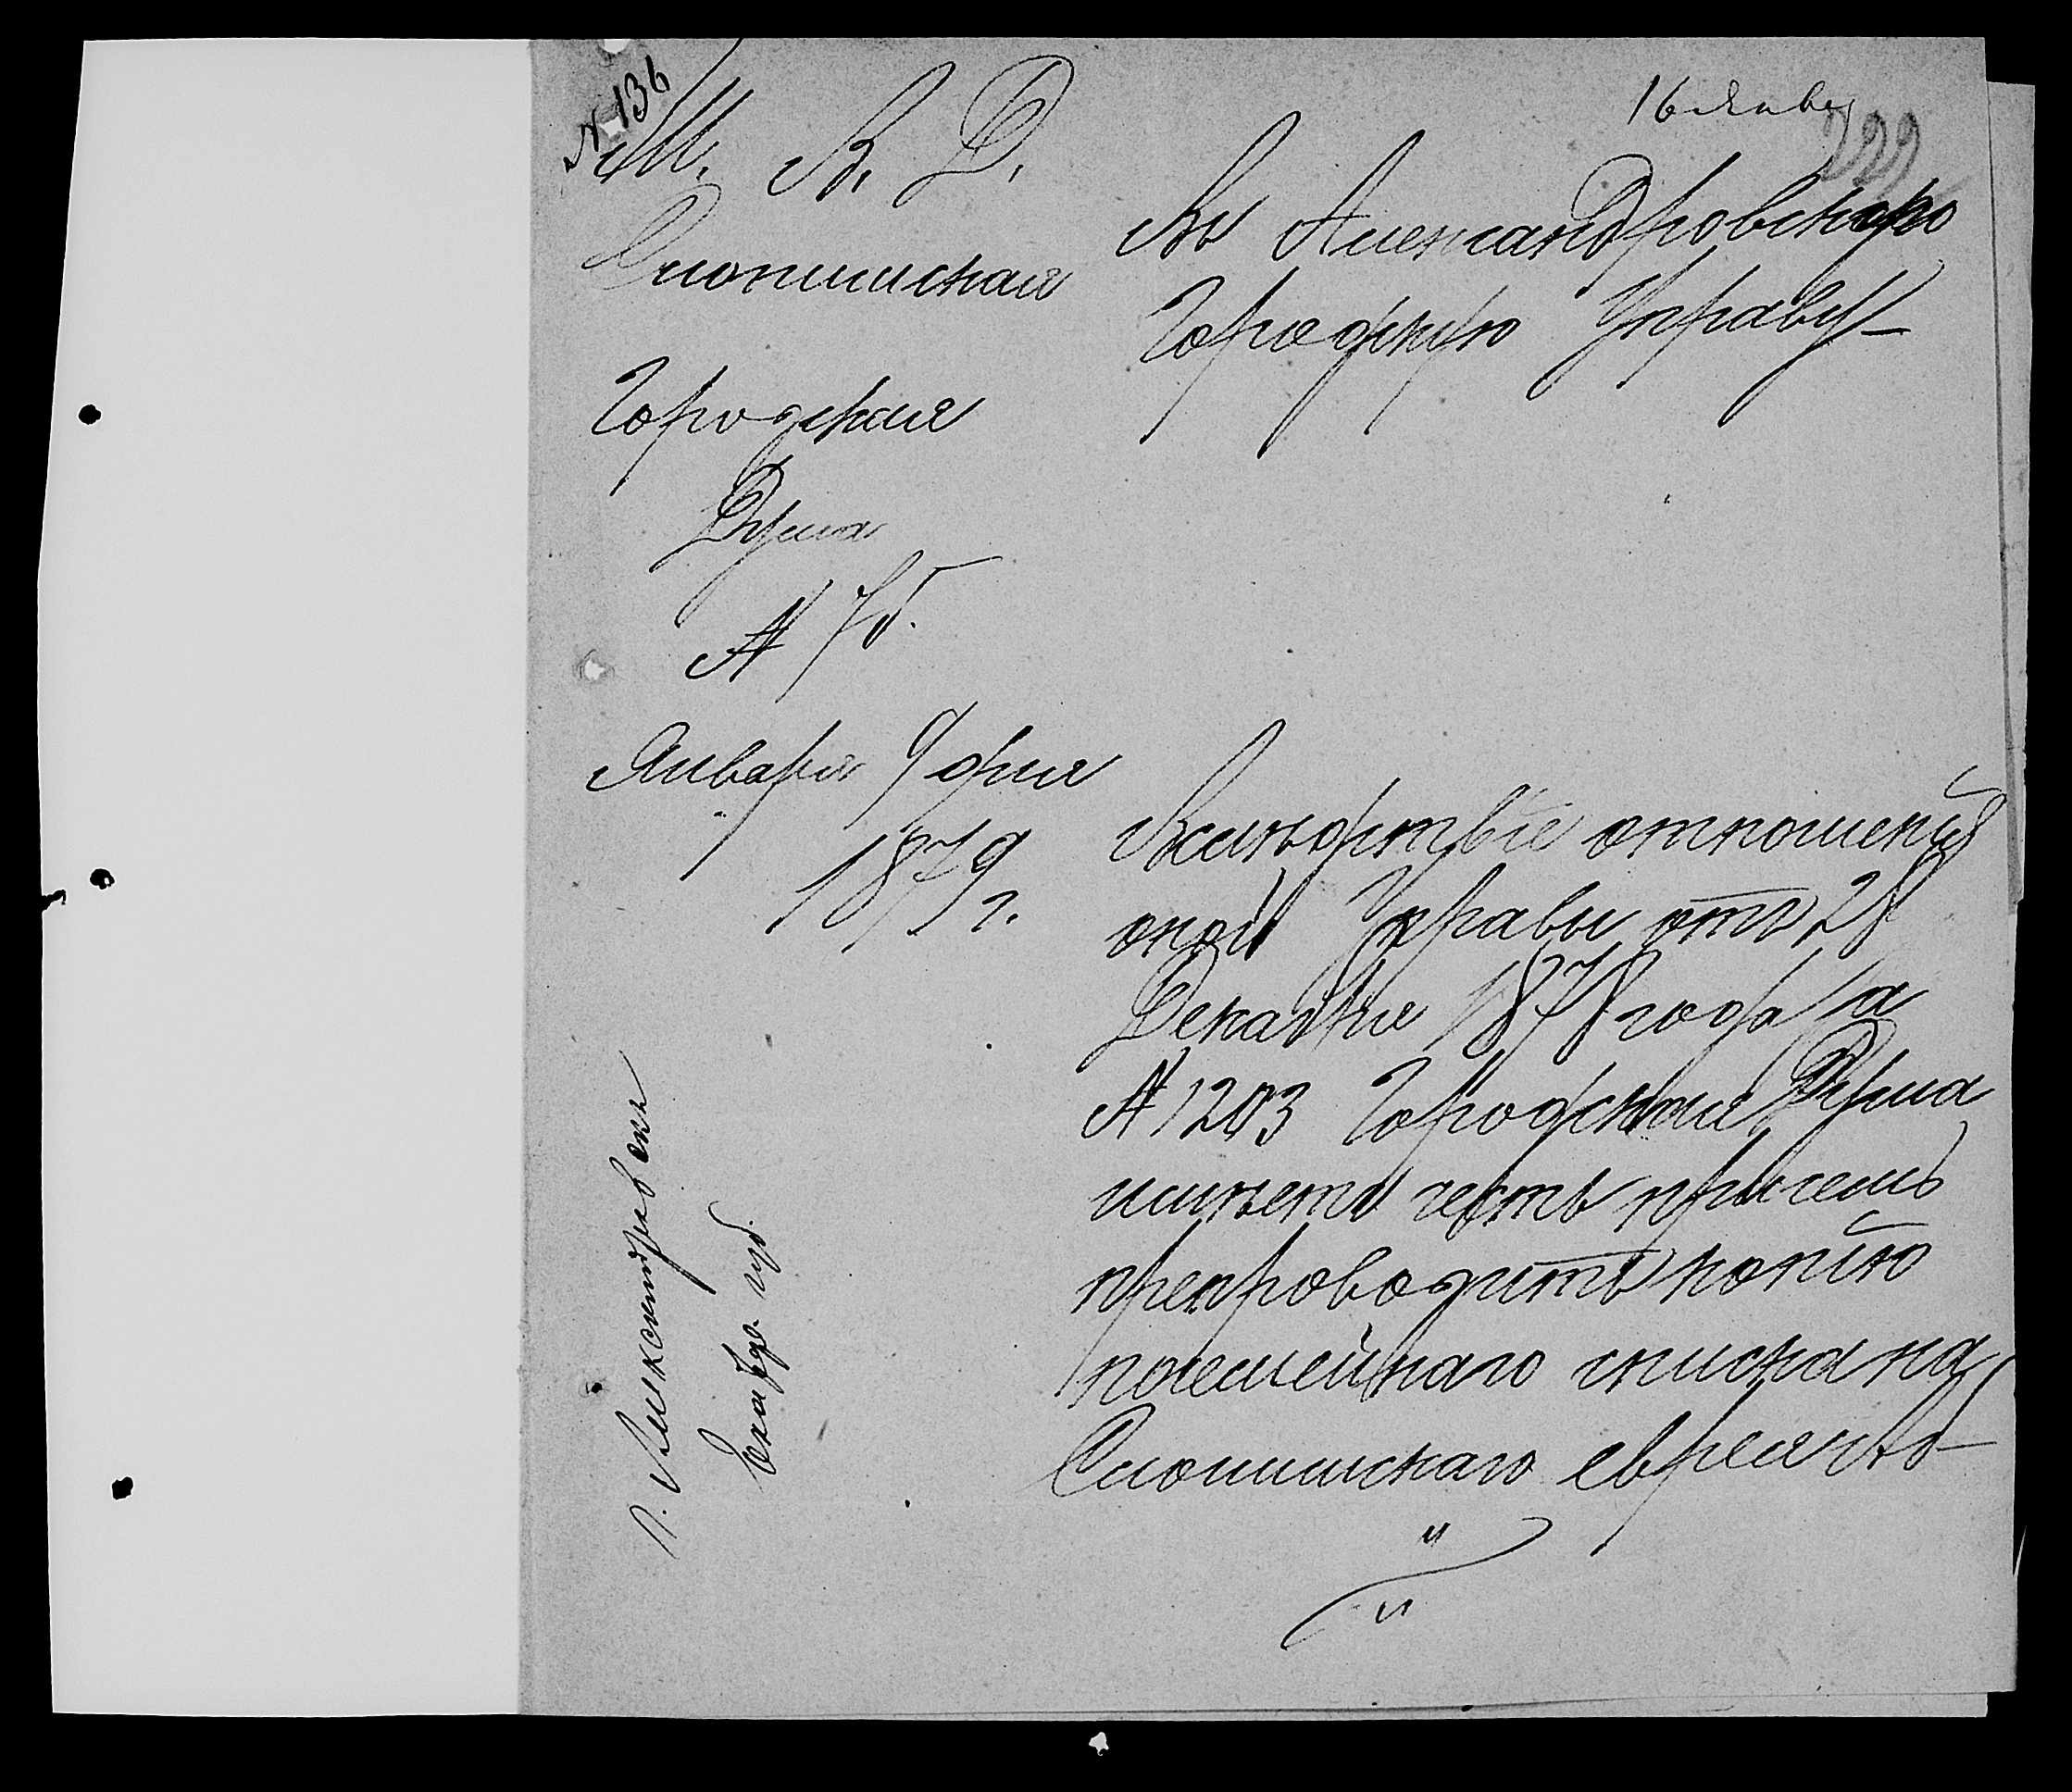 № 136
М. В. Д.
Слонимская
Городская
Дума
№ 75.
Января 9 дня
1879 г.
г. Александровскъ
Екат. губ.
16 Январ
222
Въ Александровскую
Городскую Управу
Вслѣдствіе отношенія
оной Управы отъ 28
Декабря 1878 года за
№ 1203 Городская Дума
имѣетъ честь при семъ
препроводить копію
посемейнаго списка на
Слонимскаго еврея